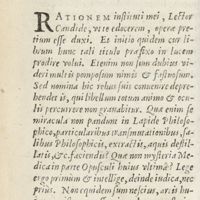 RATIONEM instituti mei, Lector
Candide, ut te edocerem, operæ pre
tium esse duxi. Et initio quidem cur li-
brum hunc tali titulo præfixo in lucem
prodire volui. Etenim non sum dubius vi-
deri multis pomposum nimis & fastuosum.
Sed nomina hic rebus suis convenire depre-
hendet is, qui libellum totum animo & ocu-
lis percurrere non gravabitur. Quæ enim se
miracula non pandunt in Lapide Philoso-
phico, particularibus transmutationibus, sa-
libus Philosophicis, extractis, aquis destil-
latis, &c. faciendu? Quæ non mysteria Me-
dica in parte Opusculi huius ultima? Lege
ergo primum & intellige, deinde iudica, nec
prius. Non equidem sum nescius, artis hu-